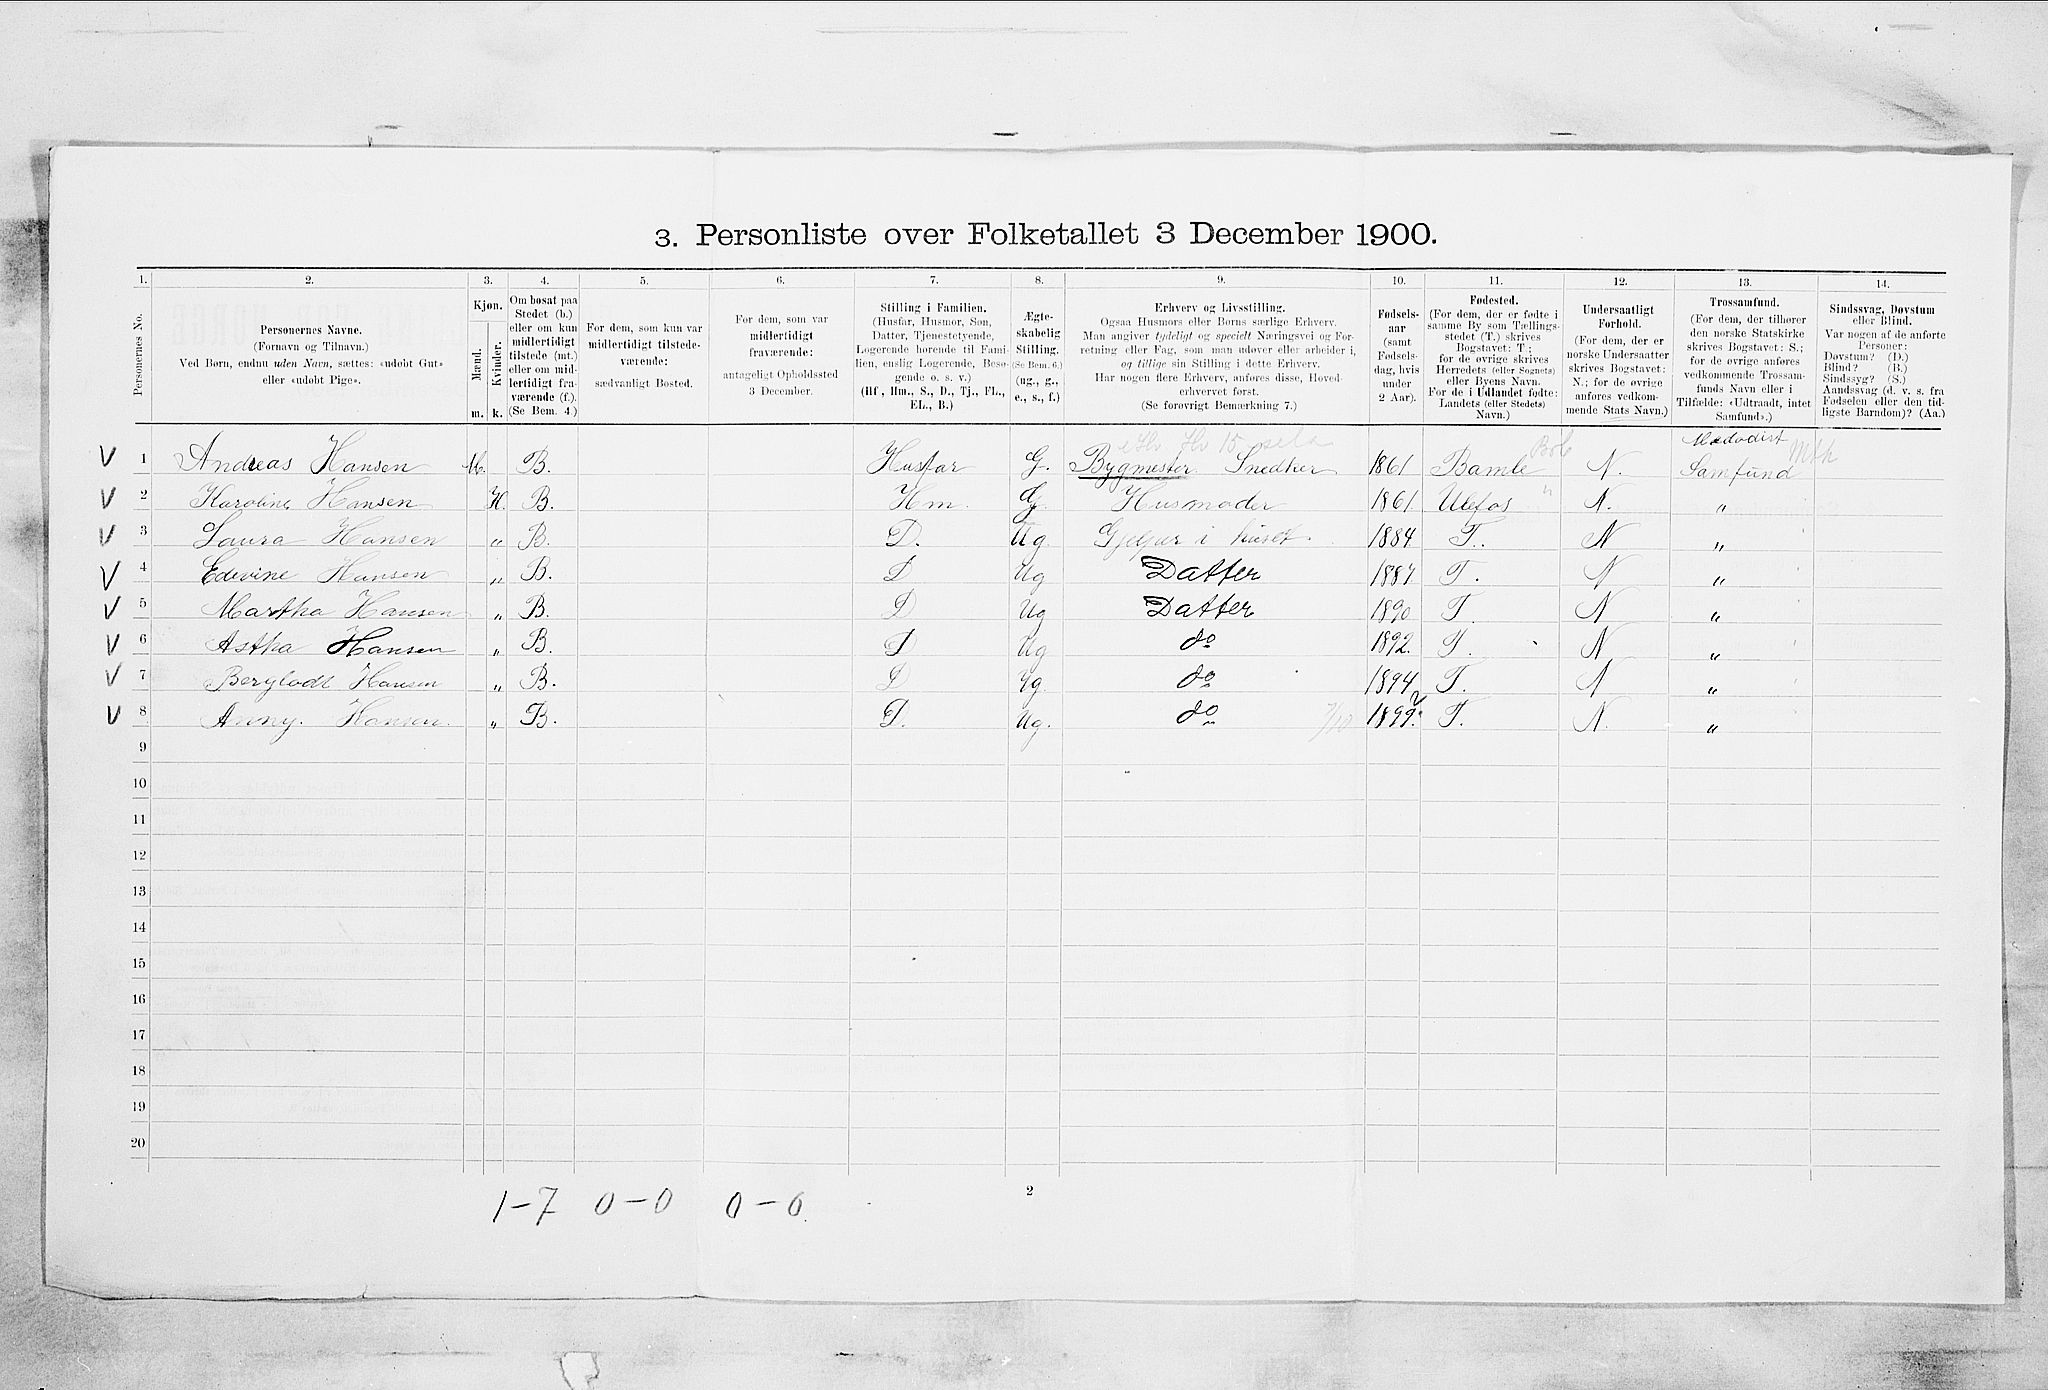 3. Personliste over Folketallet 3 December 1900.
1. 2. 3. 4. 5. 6. 7. 8. 9. 10. 11. 12. 13. 14.
Personernes No.
Personernes Navne.
(Fornavn og Tilnavn.)
Ved Børn, endnu uden Navn, sættes: «udøbt Gut»
eller «udøbt Pige».
Kjøn.
Mænd.
Kvinder.
m. k.
Om bosat paa
Stedet (b.)
eller om kun
midlertidigt
tilstede (mt.)
eller om mid-
lertidigt fra-
værende (f.).
(Se Bem. 4.)
For dem, som kun var
midlertidigt tilstede-
værende:
sædvanligt Bosted.
For dem, som var
midlertidigt
fraværende:
antageligt Opholdssted
3 December.
Stilling i Familien.
(Husfar, Husmor, Søn,
Datter, Tjenestetyende,
Logerende hørende til Fami-
lien, enslig Logerende, Besø-
gende o. s. v.)
(Hf, Hm., S., D., Tj., FL.,
EL., B.)
Ægte-
skabelig
Stilling.
(Se Bem. 6.)
(ug., g.,
e., s., f.)
Erhverv og Livsstilling.
Ogsaa Husmors eller Børns særlige Erhverv.
Man angiver tydeligt og specielt Næringsvei og For-
retning eller Fag, som man udøver eller arbeider i,
og tillige sin Stilling i dette Erhverv.
Har nogen flere Erhverv, anføres disse, Hoved-
erhvervet først.
(Se forøvrigt Bemærkning 7.)
Fødsels-
aar
(samt
Fødsels-
dag, hvis
under
2 Aar).
Fødested.
(For dem, der er fødte i
samme By som Tællings-
stedet (T.) skrives
Bogstavet: T;
for de øvrige skrives
Herredets (eller Sognets)
eller Byens Navn.
For de i Udlandet fødte:
Landets (eller Stedets)
Navn.)
Undersaatligt
Forhold.
(For dem, der er
norske Undersaatter
skrives Bogstavet:
N.; for de øvrige
anføres vedkom-
mende Stats Navn.)
Trossamfund.
(For dem, der tilhører
den norske Statskirke
skrives Bogstavet: S.;
for de øvrige anføres
vedkommende Trossam-
funds Navn eller i
Tilfælde: «Udtraadt, intet
Samfund».)
Sindssvag, Døvstum
eller Blind.
Var nogen af de anførte
Personer:
Døvstum? (D.)
Blind? (B.)
Sindssyg? (S.)
Aandssvag (d. v. s. fra
Fødselen eller den tid-
ligste Barndom)? (Aa.)
V 1 Andreas Hansen M. B. Husfar G. Bygmester Snedker 1861 Bamle N. Metodist Samfund Mth
V 2 Karoline Hansen K. B. Hm. G. Husmoder 1861 Ulefos " N. "
V 3 Laura Hansen " B. D. Ug. i huset 1884 T. N "
V 4 Edevine Hansen " B. D Ug Datter 1887 T. N "
V 5 Martha Hansen " B. D Ug Datter 1890 T. N "
V 6 Astha Hansen " B. D Ug do 1892. T. N "
V 7 Hansen " B. D Ug. do 1894 T. N "
V 8 Anny. Hansen. " B. D. Ug. do 7/10 1899. T. N. "
9
10
11
12
13
14
15
16
17
18
19
20
2
1-7 0-0 0-0